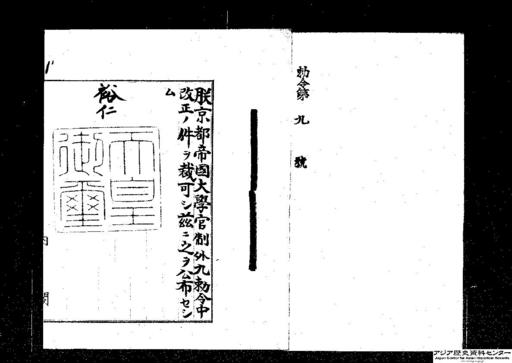 勅令第九號
朕京都帝国大學官制外九勅令中
改正ノ件ヲ裁可シ茲ニ之ヲ公布セシ
ム
裕仁
天皇
御璽
内閣
アジア歴史資料センター
Japan Center for Asian Historical Records